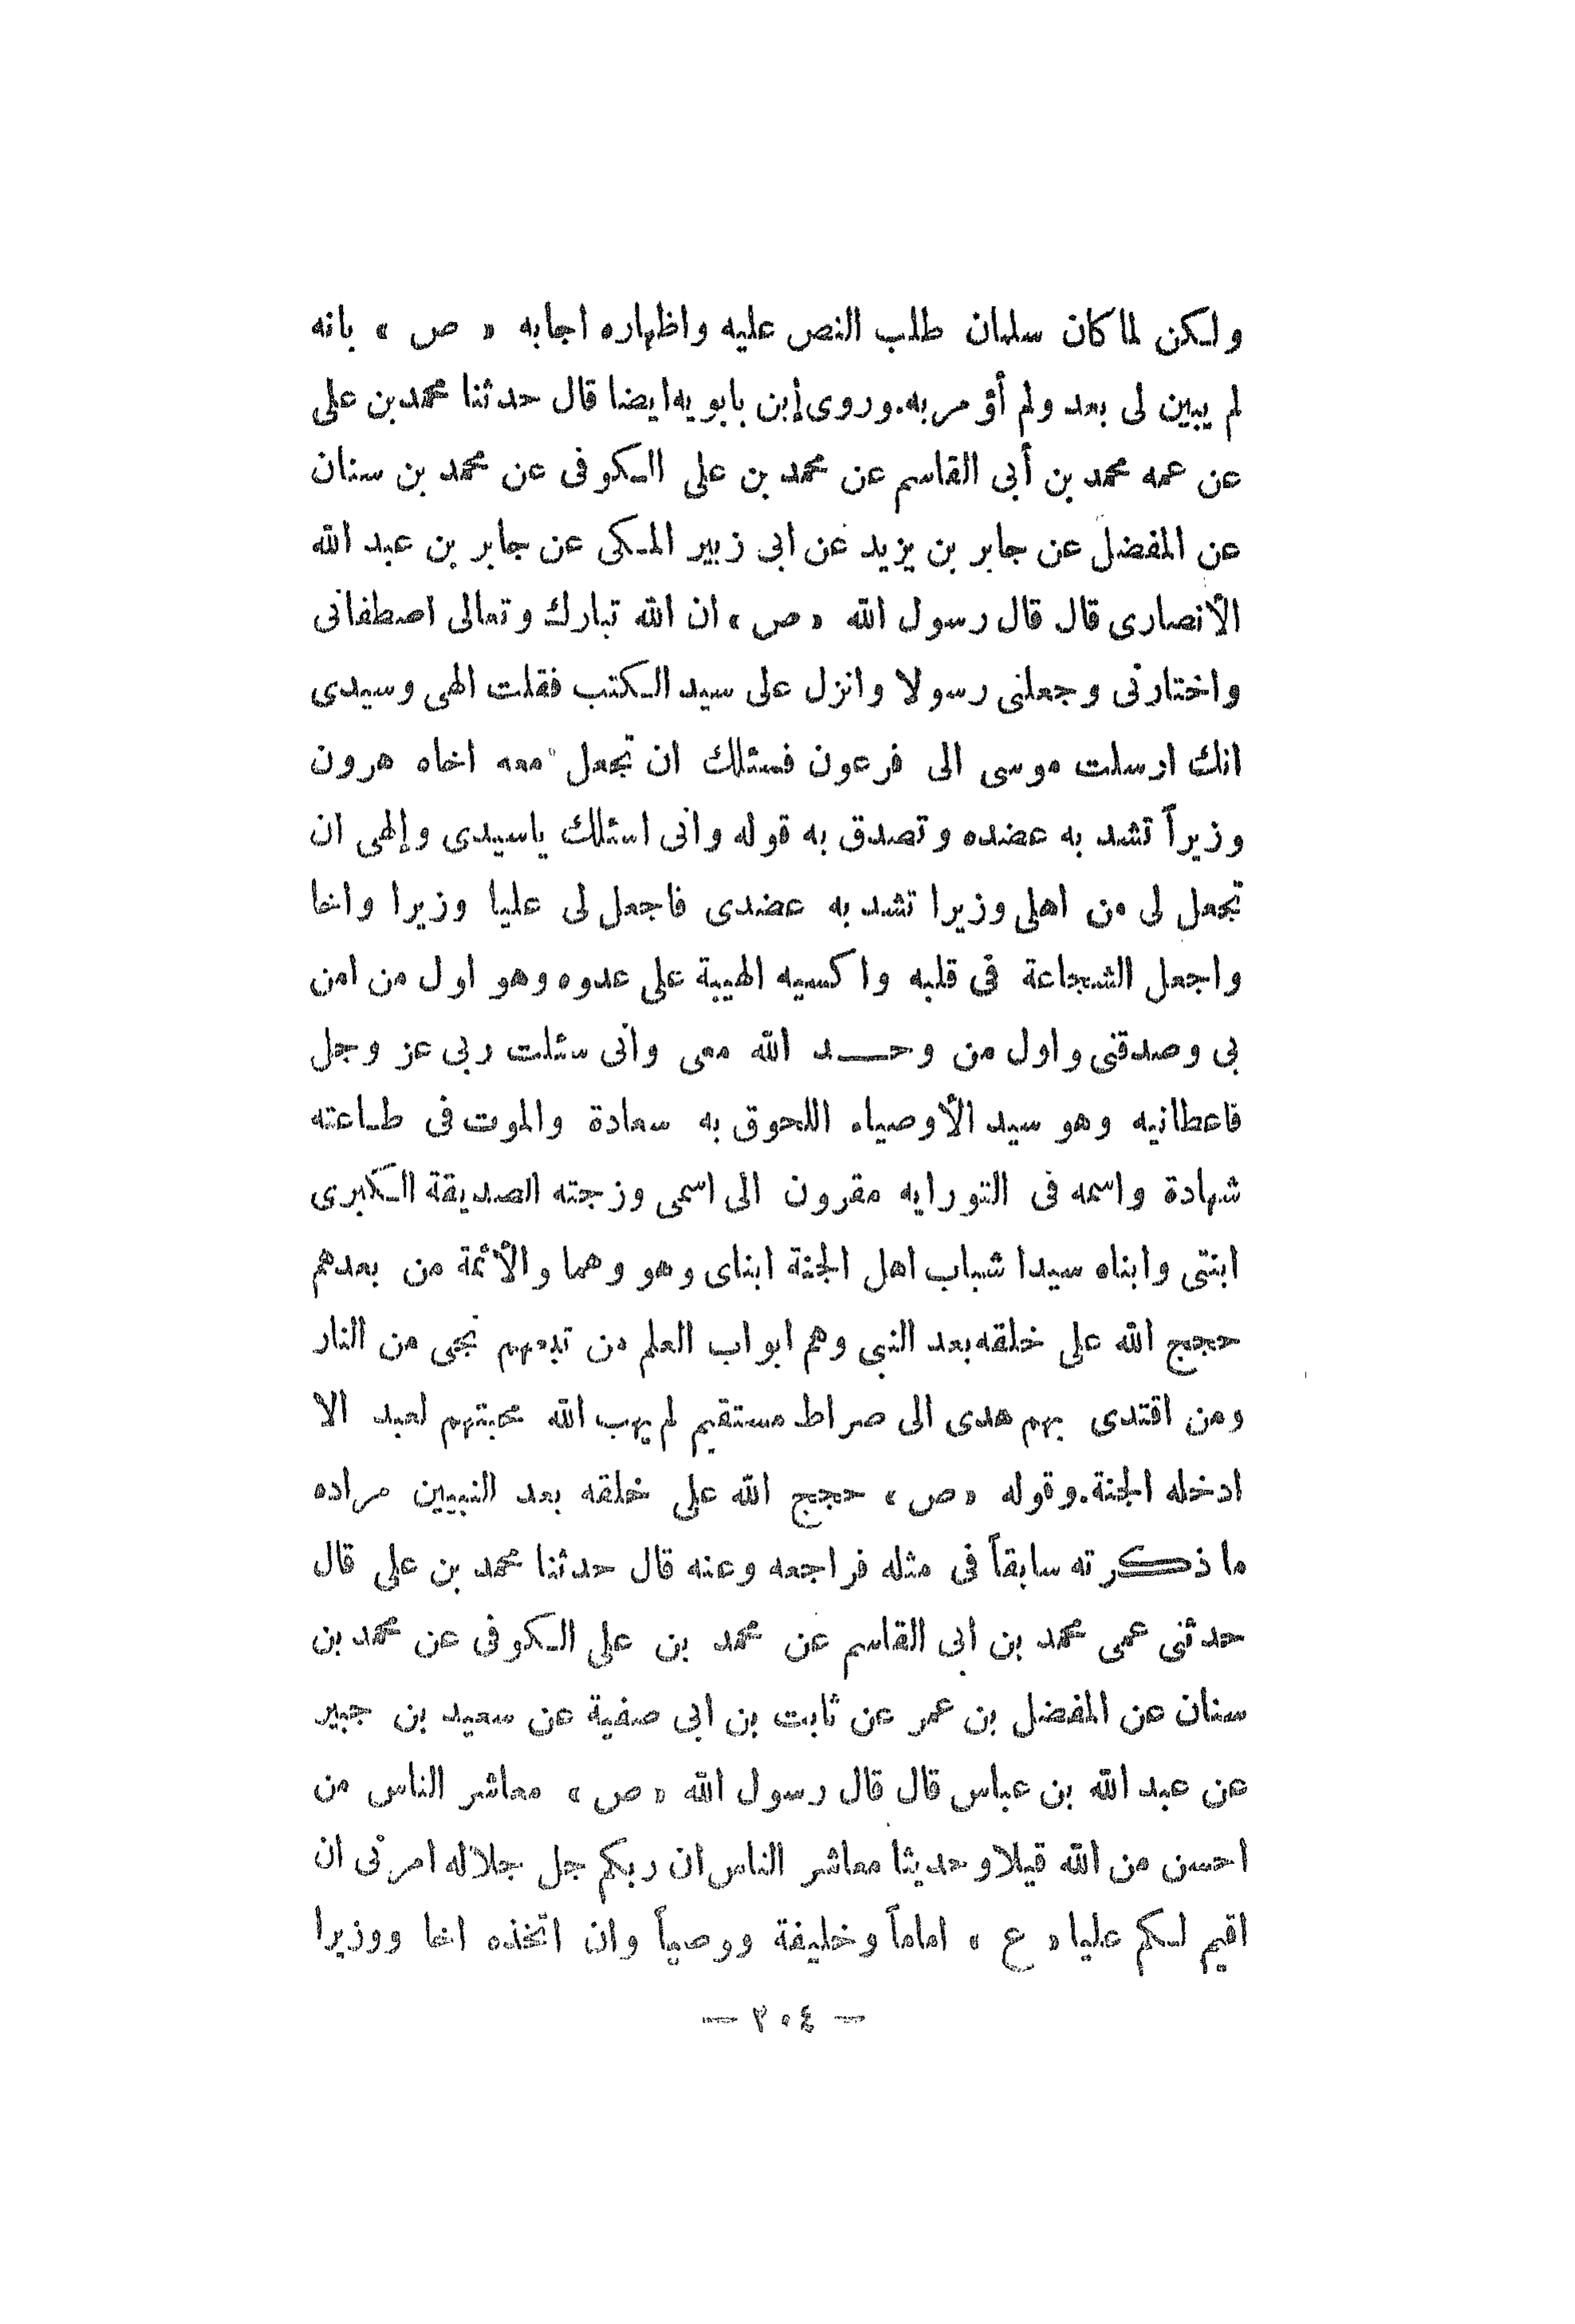 ولكن لما كان سلمان طلب النص عليه واظهاره اجابه « ص » بانه
لم يبين لى بعد ولم أؤمر به. وروى إبن بابويه ايضا قال حدثنا محمد بن على
عن عمه محمد بن أبى القاسم عن محمد بن على الكوفى عن محمد بن سنان
عن المفضل عن جابر بن يزيد عن ابى زبير المكى عن جابر بن عبد الله
الأنصارى قال قال رسول الله « ص » ان الله تبارك وتعالى اصطفانى
واختارنى وجعلنى رسولا وانزل على سيد الكتب فقلت الهى وسيدى
انك ارسلت موسى الى فرعون فسئلك ان تجعل معه اخاه هرون
وزيراً تشد به عضده وتصدق به قوله وانى اسئلك ياسيدى وإلهى ان
تجعل لى من اهلى وزيرا تشد به عضدى فاجعل لى عليا وزيرا واخا
واجعل الشجاعة فى قلبه واكسيه الهيبة على عدوه وهو اول من امن
بى وصدقنى واول من وحــد الله معى وانى سئلت ربى عز وجل
فاعطانيه وهو سيد الأوصياء اللحوق به سعادة والموت فى طاعته
شهادة واسمه فى التوراية مقرون الى اسمى وزجته الصديقة الكبرى
ابنتى وابناه سيدا شباب اهل الجنة ابناى وهو وهما والأئمة من بعدهم
حجج الله على خلقه بعد النبي وهم ابواب العلم من تبعهم نجى من النار
ومن اقتدى بهم هدى الى صراط مستقيم لم يهب الله محبتهم لعبد الا
ادخله الجنة. وقوله « ص » حجج الله على خلقه بعد النبيين مراده
ما ذكرته سابقاً فى مثله فراجعه وعنه قال حدثنا محمد بن على قال
حدثنى عمى محمد بن ابى القاسم عن محمد بن على الكوفى عن محمد بن
سنان عن المفضل بن عمر عن ثابت بن ابى صفية عن سعيد بن جبير
عن عبد الله بن عباس قال قال رسول الله « ص » معاشر الناس من
احسن من الله قيلا وحديثا معاشر الناس ان ربكم جل جلاله امرنى ان
اقيم لكم عليا « ع » اماماً وخليفة ووصياً وان اتخذه اخا ووزيرا
— ٣٠٤ —